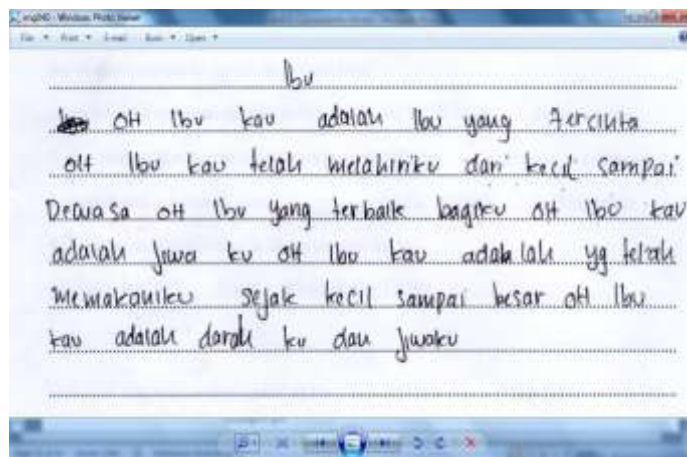 img040 - Windows Photo Viewer
File Print E-mail Burn Open
Ibu
OH Ibu kau adalah Ibu yang Tercinta
OH Ibu kau telah melahirku dari kecil sampai
Dewasa OH Ibu yang terbaik bagiku OH Ibu kau
adalah Jiwa ku OH Ibu kau adalah lah yg telah
Memakaniku sejak kecil sampai besar OH Ibu
kau adalah darah ku dan Jiwaku